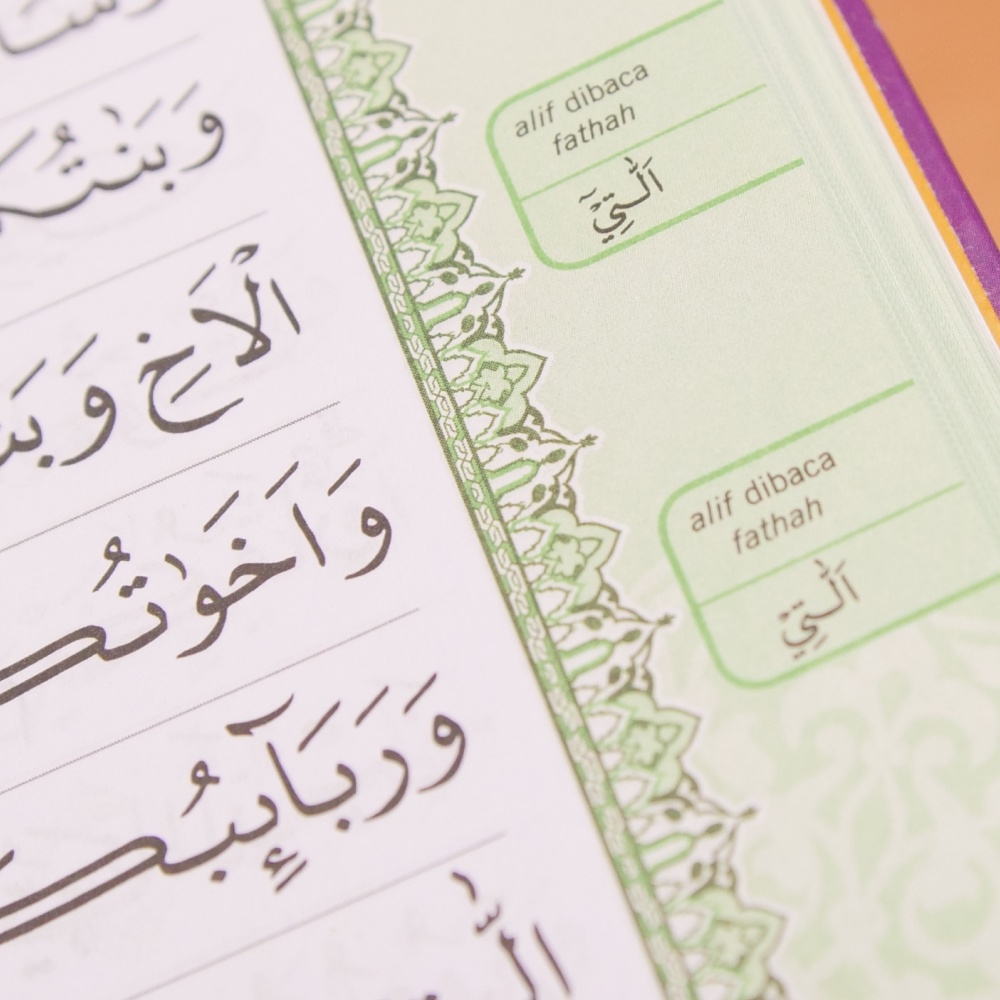 وَبَنٰتُكُ
الْاَخِ وَبَنٰ
وَاَخَوٰتُكُ
وَرَبَاۤىِٕبُكُ
alif dibaca
fathah
اَلّٰتِيْٓ
alif dibaca
fathah
اَلّٰتِيْ